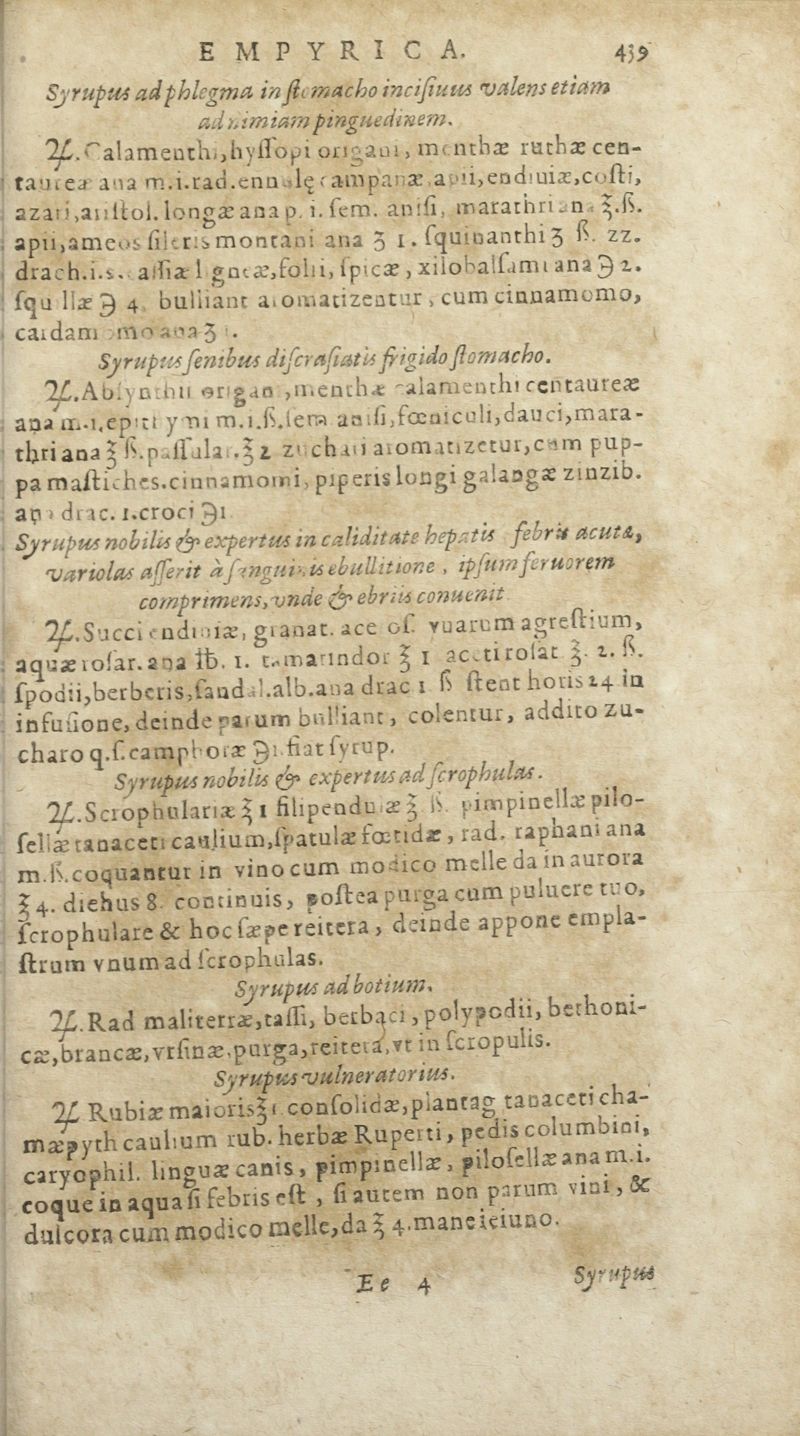 EMPYRICA. 439
Syrupus ad phlegma in stomacho incisiuus valens etiam
ad nimiam pinguedinem.
℞. Calamenthi, hyssopi origani, menthæ ruthæ cen-
taureæ ana m.i.rad.enulę campanæ, apii, endiuiæ, costi,
azari, aristol. longæ ana p. i. sem. anisi, marathri ana ℥.ß.
apii, ameos sileris montani ana ʒ 1. squinanthi ʒ ß. zz.
drach.i.s. assiæ ligneæ, folii, spicæ, xilobalsami ana ℈ 2.
squillæ ℈ 4. bulliant aromatizentur, cum cinnamomo,
cardamomo ana ʒ
Syrupus senibus discrasiatis frigido stomacho.
℞. Absynthii origan, menthæ calamenthi centaureæ
ana m.1. epiti ymi m.1.ß.sem anisi, fœniculi, dauci, mara-
thri ana ℥ ß.passular.℥ 2 zuchari aromatizetur, cum pup-
pa mastiches. cinnamomi, piperis longi galangæ zinzib.
ana drac. 1. croci ℈1
Syrupus nobilis & expertus in caliditate hepatis febris acuta,
variolas asserit à sanguinis ebullitione, ipsum feruorem
comprimens, vnde & ebriis conuenit
℞. Succi endiuiæ, granat. ace os. vuarum agrestium,
aquæ rosar. ana ℔. 1. tamarindor ℥ 1 aceti rosat ℥. 2. ß.
spodii, berberis, sandal.alb.ana drac 1 ß stent horis 24 in
infusione, deinde parum bulliant, colentur, addito zu-
charo q.s. camphoræ ℈1. fiat syrup.
Syrupus nobilis & expertus ad scrophulas.
℞. Scrophulariæ ℥ 1 filipendulæ ℥ ß. pimpinellæ pilo-
sellæ tanaceti caulium, spatulæ fœtidæ, rad. raphani ana
m.ß.coquantur in vino cum modico melle da in aurora
℥ 4. diebus 8. continuis, postea purga cum puluere tuo,
scrophulare & hoc sæpe reitera, deinde appone empla-
strum vnum ad scrophulas.
Syrupus ad botium.
℞. Rad maliterræ, tassi, berbaci, polypodii, bethoni-
cæ, brancæ, vrsinæ, purga, reitera, vt in scropulis.
Syrupus vulneratorius.
℞ Rubiæ maioris ℥1 consolidæ, plantag tanaceti cha-
mæpyth caulium rub. herbæ Ruperti, pedis columbini,
caryophil. linguæ canis, pimpinellæ, pilosellæ ana m.i.
coque in aqua si febris est, si autem non parum vini, &
dulcora cum modico melle, da ℥ 4. mane ieiuno.
Ee 4 Syrupus